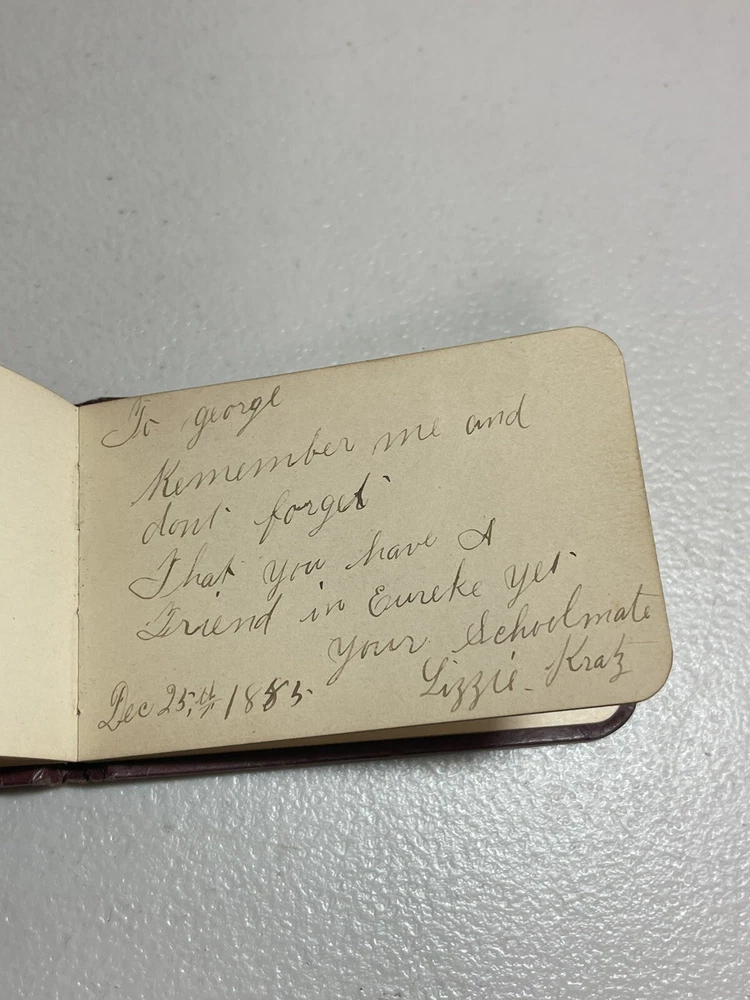 To george
Remember me and
dont forget
That you have A
Friend in Eureke yet.
Your Schoolmate
Lizzie Kratz
Dec 25th 1885.